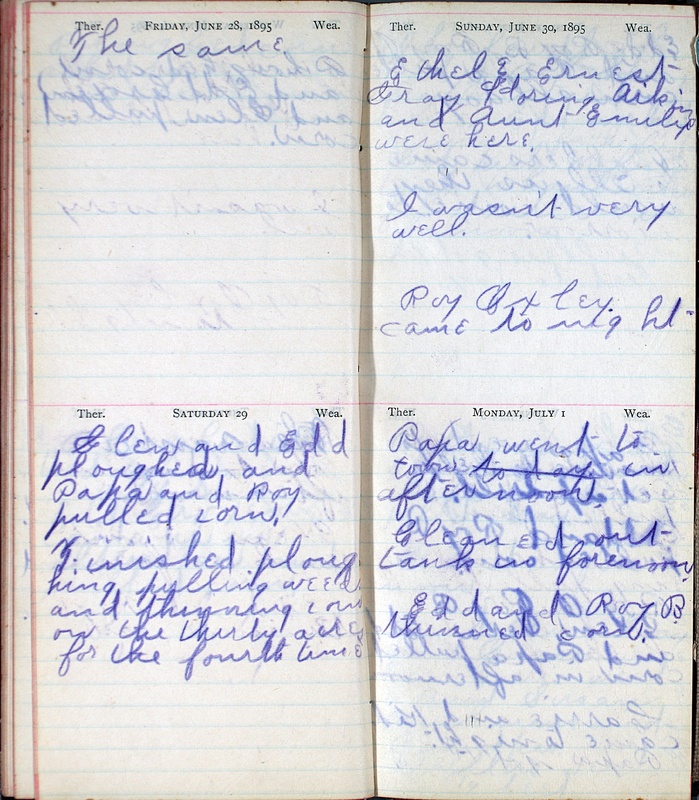 Ther. FRIDAY, JUNE 28, 1895 Wea.
The same.
Ther. SATURDAY 29 Wea.
Glen and Edd
ploughed and
Papa and Roy
pulled corn.
Finished ploug
hing pulling weeds
and thinning corn
on the thirty acres
for the fourth time
Ther. SUNDAY, JUNE 30, 1895 Wea.
Ethel E. Ernest
Gray
and Aunt Emily
were here.
I wasn't very
well.
Roy Oxley.
came to night
Ther. MONDAY, JULY 1 Wea.
Papa went to
town to day in
afternoon.
Cleaned out
tank in forenoon,
Edd and Roy B
thinned corn.